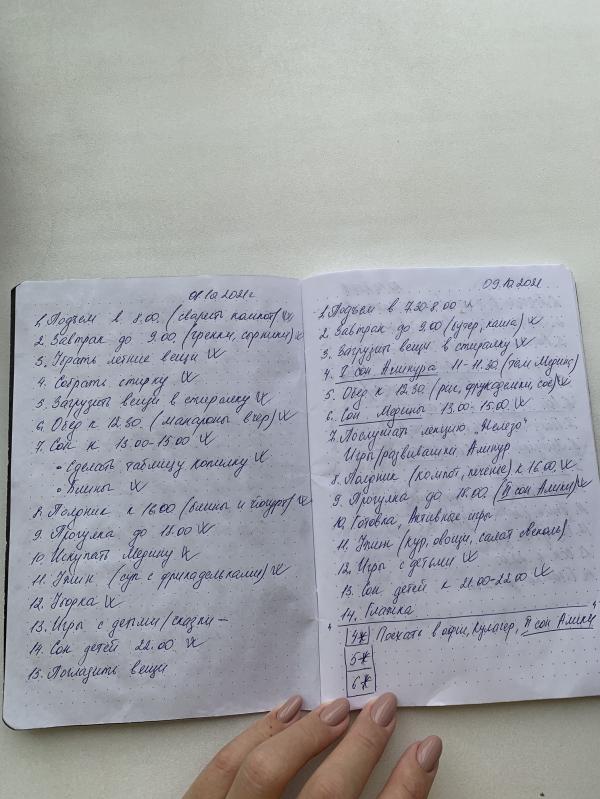 08.10.2021г
1. Подъем в 8.00. (сварить компот)
2. Завтрак до 9.00 (гренки, сырники)
3. Убрать летние вещи
4. Собрать стирку
5. Загрузить вещи в стиралку
6. Обед к 12.30. (макароны вчер)
7. Сон к 13.00-15.00
• Сделать таблицу копилку
• Блины
8. Полдник к 16.00 (блины и йогурт)
9. Прогулка до 18.00
10. Искупать Медину
11. Ужин (суп с фрикадельками)
12. Уборка
13. Игры с детьми/сказки –
14. Сон детей 22.00.
15. Погладить вещи
09.10.2021
1. Подъем в 7.30-8.00
2. Завтрак до 9.00 (бутер, каша)
3. Загрузить вещи в стиралку
4. I сон 11-11.30
5. Обед к 12.30. (рис)
6. Сон Медины 13.00-15.00
7. Послушать лекцию "Железо"
Игры/развивашки
8. Полдник (компот, печенье) к 16.00.
9. Прогулка до 18.00.
10. Готовка, Активные игры
11. Ужин (кур, овощи, салат свекольн)
12. Игры с детьми
13. Сон детей к 21.00-22.00
14. Глажка
4* Поехать в офис, II сон
5*
6*